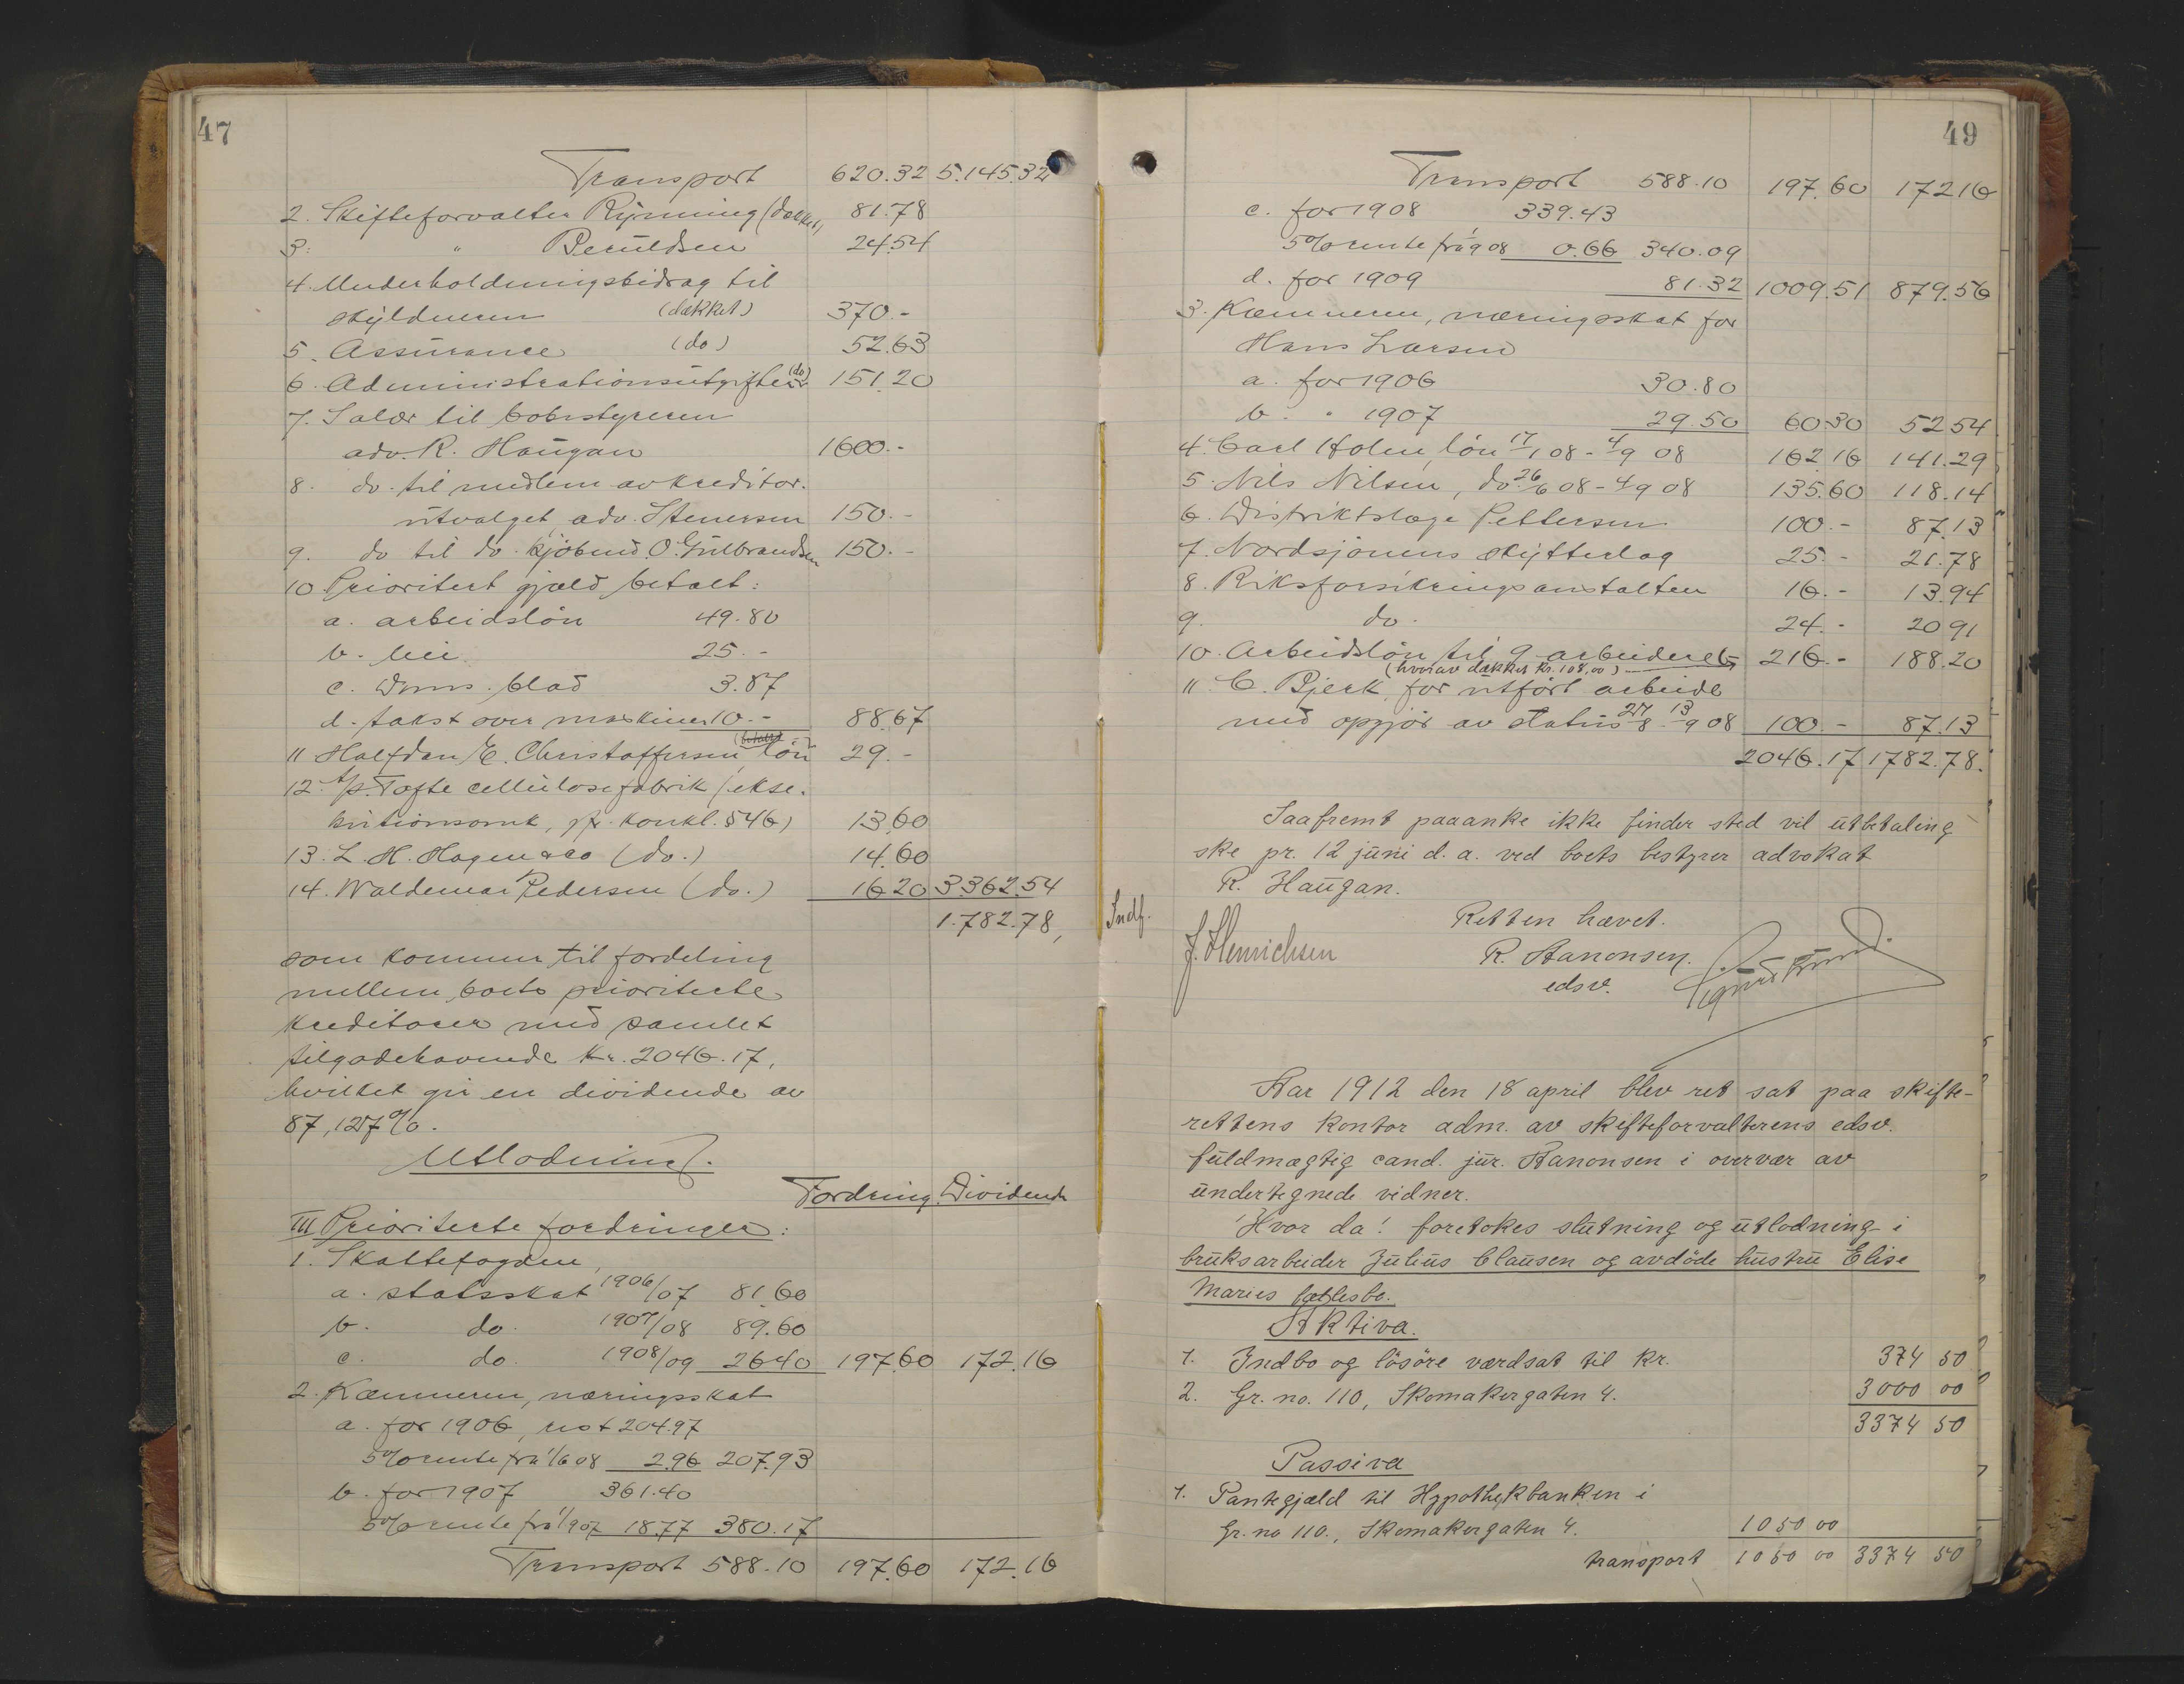 47
Transport 620.32 5.145.32
2. Skifteforvalter Rynning (dækket) 81.78
3. " Berüldsen 24.54
4. Underholdningsbidrag til
skyldneren (dækket) 370.-
5. Assürance (do) 52.63
6. Administrationsutgifter (do) 151.20
7. Salær til bobestyreren
adv. R. Haugan 1600.-
8. do. til medlem av kreditor.
utvalget, adv. Stenersen 150.-
9. do til do. kjöbmd. O. Gulbrandsen 150.-
10. Prioritert gjæld betalt:
a. arbeidslön 49.80
b. leie 25.-
c. Drms. blad 3.87
d. takst over maskiner 10.- 88.67
11 Halfdan E. Christoffersen, lön 29.-
12. A/s. Tofte cellulosefabrik (ekse.
kutionsomk, jfr. konkl. § 46) 13.60
13. L. H. Hagen & Co (do.) 14.60
14. Waldemar Pedersen (do.) 16.20 3362.54
1.782.78,
som kommer til fordeling
mellem boets prioriterte
kreditorer med samlet
tilgodehavende kr. 2046.17,
hvilket gir en dividende av
87,127 %.
Utlodning.
Fordring. Dividende
III Prioriterte fordringer:
1. Skattefogden,
a. statsskat 1906/07 81.60
b. do. 1907/08 89.60
c. do. 1908/09 26.40 197.60 172.16
2. Kæmneren, næringsskat
a. for 1906, rest 204.97
5% rente fra 1/6 08 2.96 207.93
b. for 1907 361.40
5% rente fra 1/9 07 18.77 380.17
Transport 588.10 197.60 172.16
49
Transport 588.10 197.60 172.16
c. for 1908 339.43
5% rente fra 1/9 08 0.66 340.09
d. for 1909 81.32 1009.51 879.56
3. Kæmneren, næringsskat for
Hans Larsen
a. for 1906 30.80
b. " 1907 29.50 60.30 52.54
4. Carl Holm, lön 17/1 08 - 4/9 08 162.16 141.29
5. Nils Nilsen, do. 26/6 08 - 4/9 08 135.60 118.14
6. Distriktslæge Pettersen 100.- 87.13
7. Nordsjönens skifterlag 25.- 21.78
8. Riksforsikringsanstalten 16.- 13.94
9. do. 24.- 20.91
10. Arbeidslön til 9 arbeidere 216.- 188.20
(hvorav dækket kr. 108,00)
11. C. Bjerk, for utfört arbeide
med opgjör av status 27/8 - 13/9 08 100.- 87.13
2046.17 1782.78.
Saafremt paaanke ikke finder sted vil utbetaling
ske pr. 12 juni d. a. ved boets bestyrer advokat
R. Haugan.
Indf.
Retten hævet.
J. Henrichsen R. Aanonsen.
edsv.
Aar 1912 den 18 april blev ret sat paa skifte-
rettens kontor adm. av skifteforvalterens edsv.
fuldmægtig cand. jur. Aanonsen i overvær av
undertegnede vidner.
Hvor da! foretokes slutning og utlodning i
bruksarbeider Julius Clausen og avdöde hustru Elise
Maries fællesbo.
Aktiva.
1. Indbo og lösöre værdsat til kr. 374 50
2. Gr. no. 110, Skomakergaten 4. 3000 00
3374 50
Passiva
1. Pantegjæld til Hypothekbanken i
Gr. no 110., Skomakergaten 4. 1050 00
transport 1050 00 3374 50